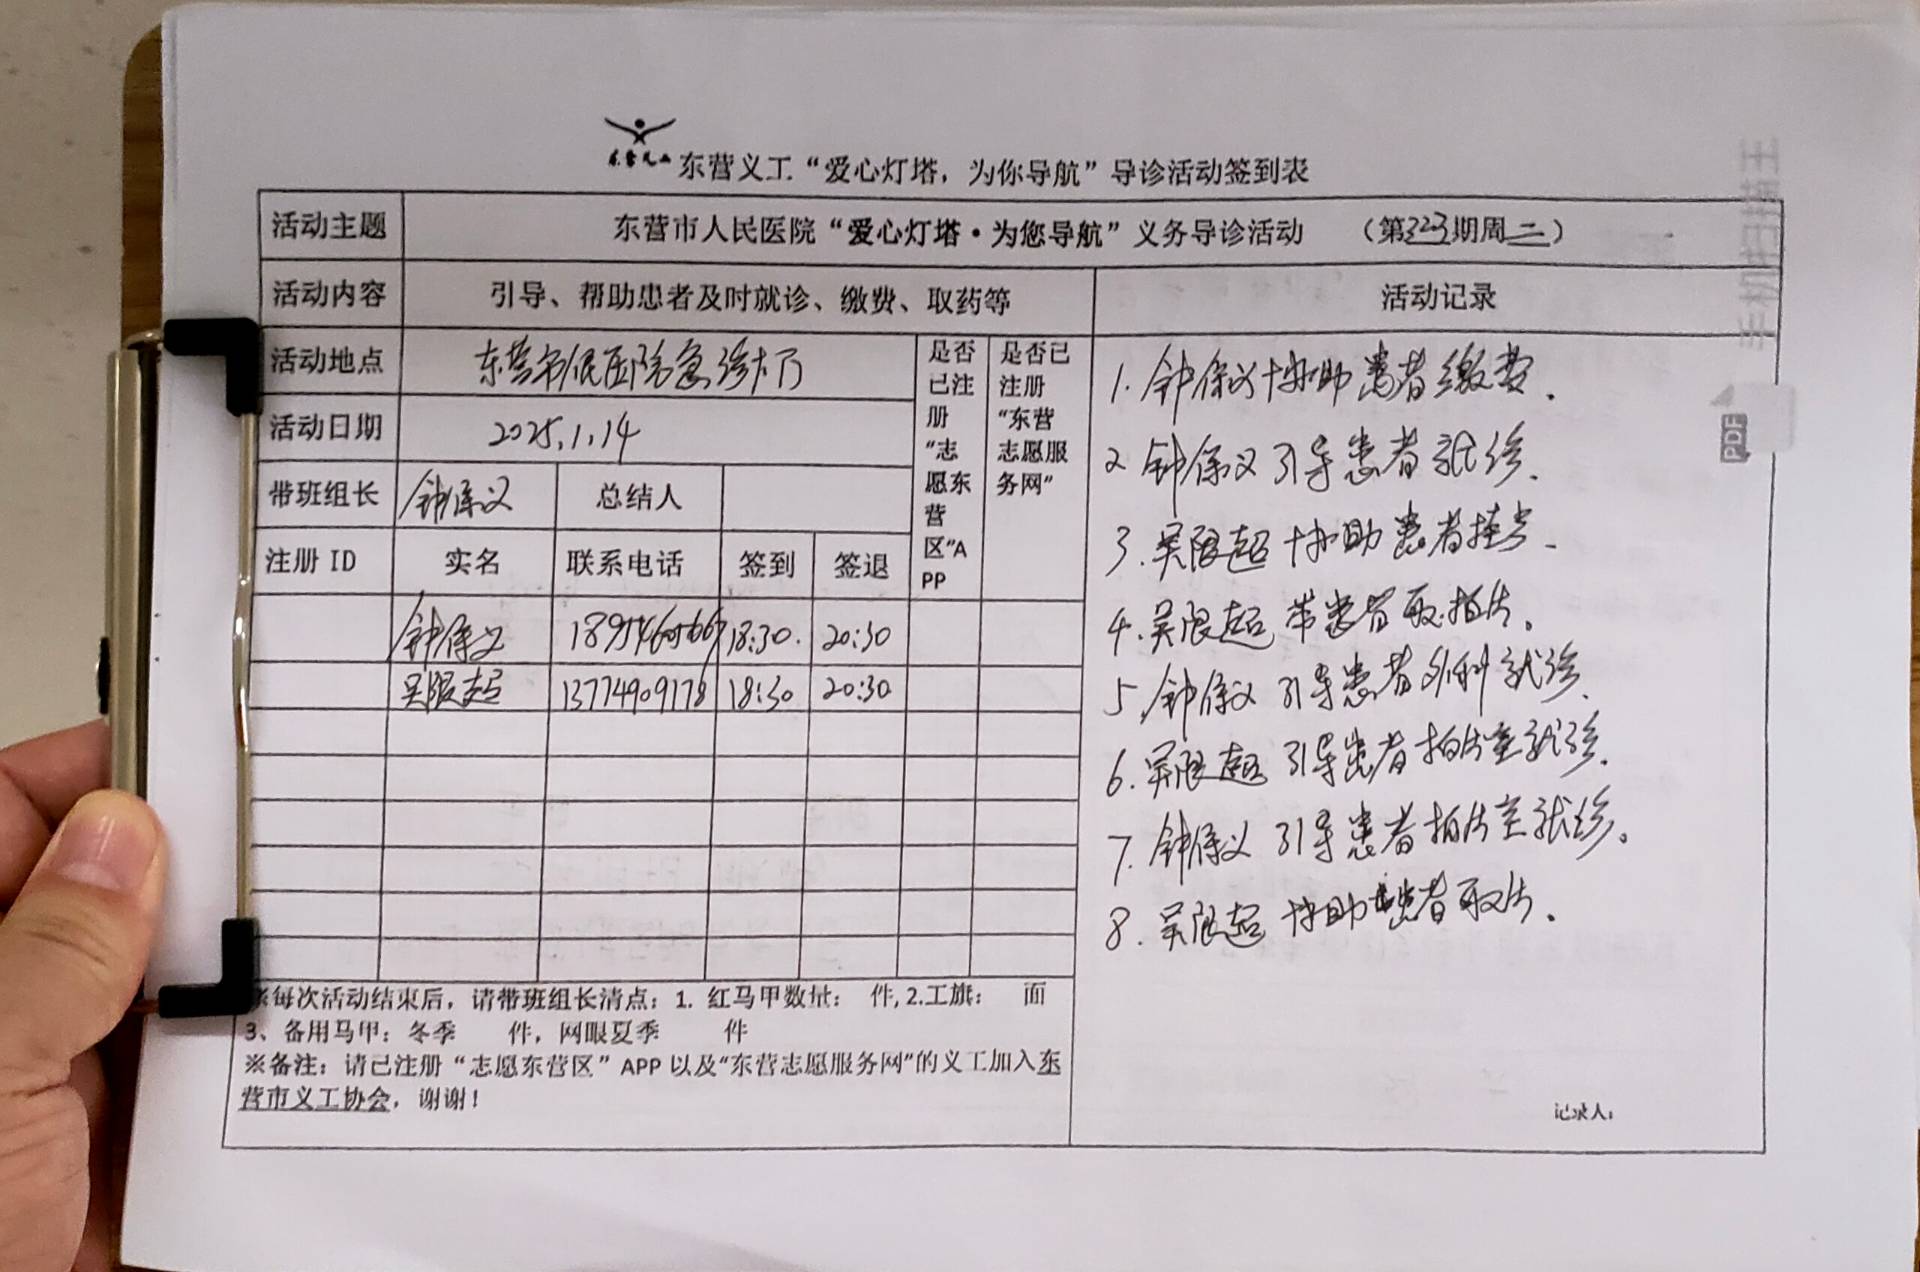 东营义工“爱心灯塔，为你导航”导诊活动签到表
活动主题 东营市人民医院“爱心灯塔·为您导航”义务导诊活动 （第323期周二）
活动内容 引导、帮助患者及时就诊、缴费、取药等 活动记录
活动地点 东营市人民医院急诊大厅
是否已注册“志愿东营区”APP
是否已注册“东营志愿服务网”
活动日期 2025.1.14
带班组长 钟保义 总结人
注册 ID 实名 联系电话 签到 签退
钟保义 18:30. 20:30
吴限超 13774909178 18:30 20:30
1. 钟保义协助患者缴费.
2 钟保义引导患者就诊.
3. 吴限超协助患者挂号.
4. 吴限超带患者取拍片。
5. 钟保义引导患者外科就诊.
6. 吴限超引导患者拍片室就诊.
7. 钟保义引导患者拍片室就诊。
8. 吴限超协助患者取片.
※每次活动结束后，请带班组长清点：1. 红马甲数量： 件, 2.工旗： 面
3、备用马甲：冬季 件，网眼夏季 件
※备注：请已注册“志愿东营区”APP 以及“东营志愿服务网”的义工加入东
营市义工协会，谢谢！
记录人：
手机扫描王
PDF